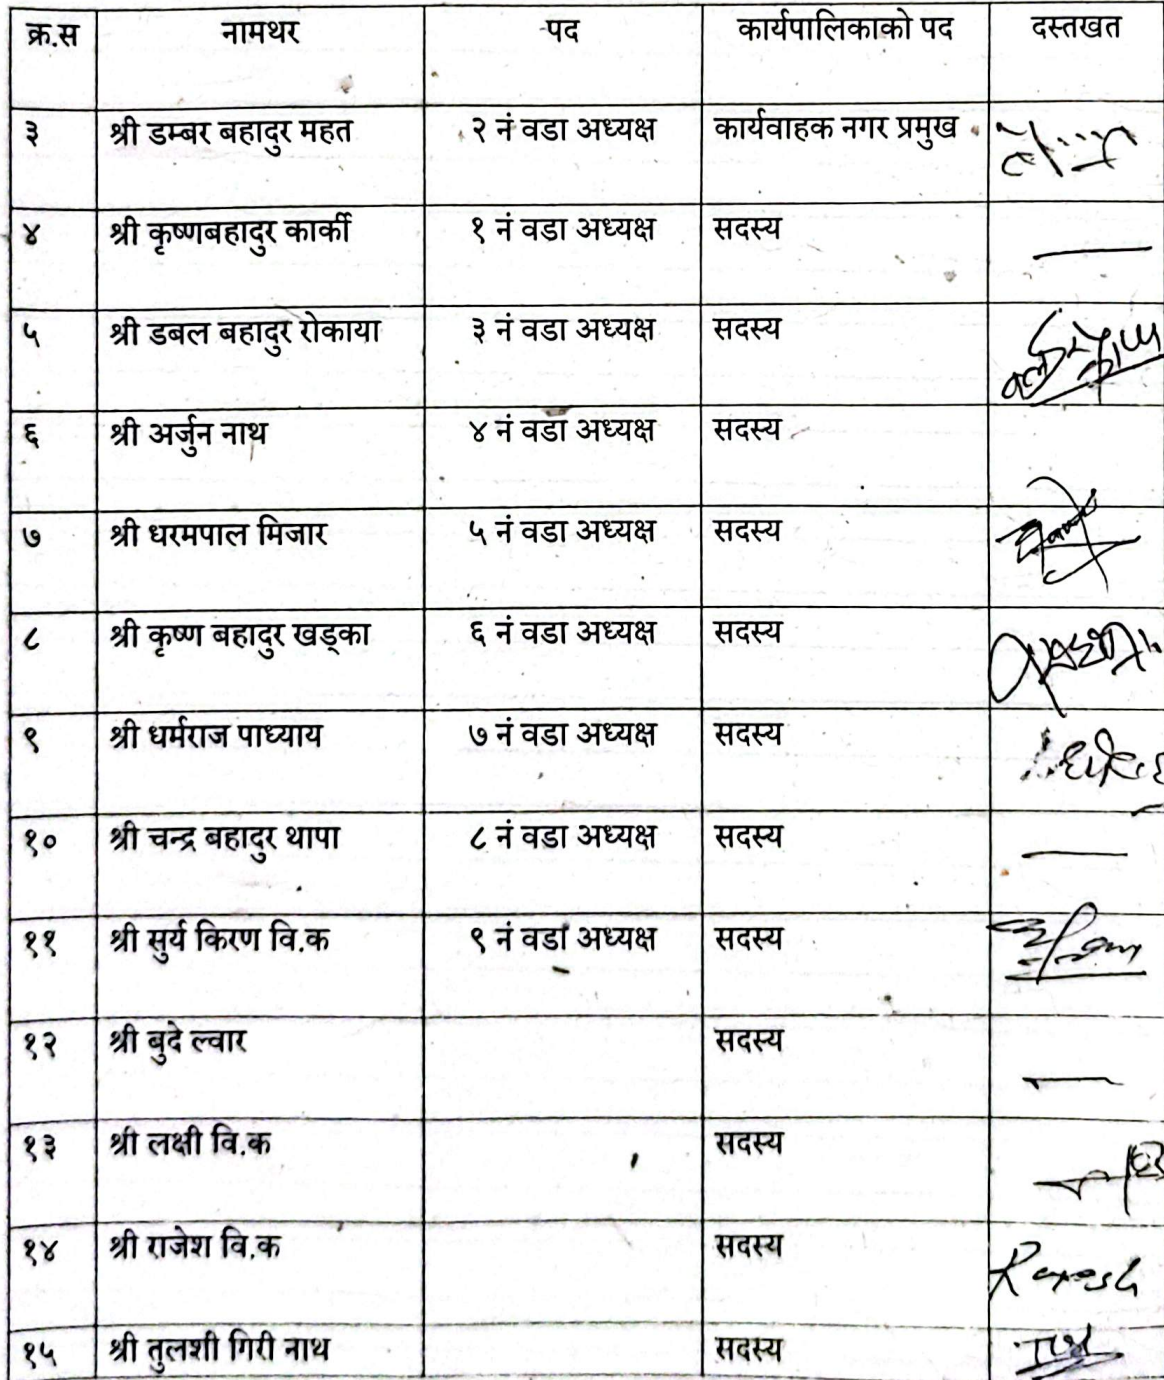 क्र.स नामथर पद कार्यपालिकाको पद दस्तखत
३ श्री डम्बर बहादुर महत २ नं वडा अध्यक्ष कार्यवाहक नगर प्रमुख
४ श्री कृष्णबहादुर कार्की १ नं वडा अध्यक्ष सदस्य
५ श्री डबल बहादुर रोकाया ३ नं वडा अध्यक्ष सदस्य
६ श्री अर्जुन नाथ ४ नं वडा अध्यक्ष सदस्य
७ श्री धरमपाल मिजार ५ नं वडा अध्यक्ष सदस्य
८ श्री कृष्ण बहादुर खड्का ६ नं वडा अध्यक्ष सदस्य
९ श्री धर्मराज पाध्याय ७ नं वडा अध्यक्ष सदस्य
१० श्री चन्द्र बहादुर थापा ८ नं वडा अध्यक्ष सदस्य
११ श्री सुर्य किरण वि.क ९ नं वडा अध्यक्ष सदस्य
१२ श्री बुदे ल्वार सदस्य
१३ श्री लक्षी वि.क सदस्य
१४ श्री राजेश वि.क सदस्य
१५ श्री तुलशी गिरी नाथ सदस्य